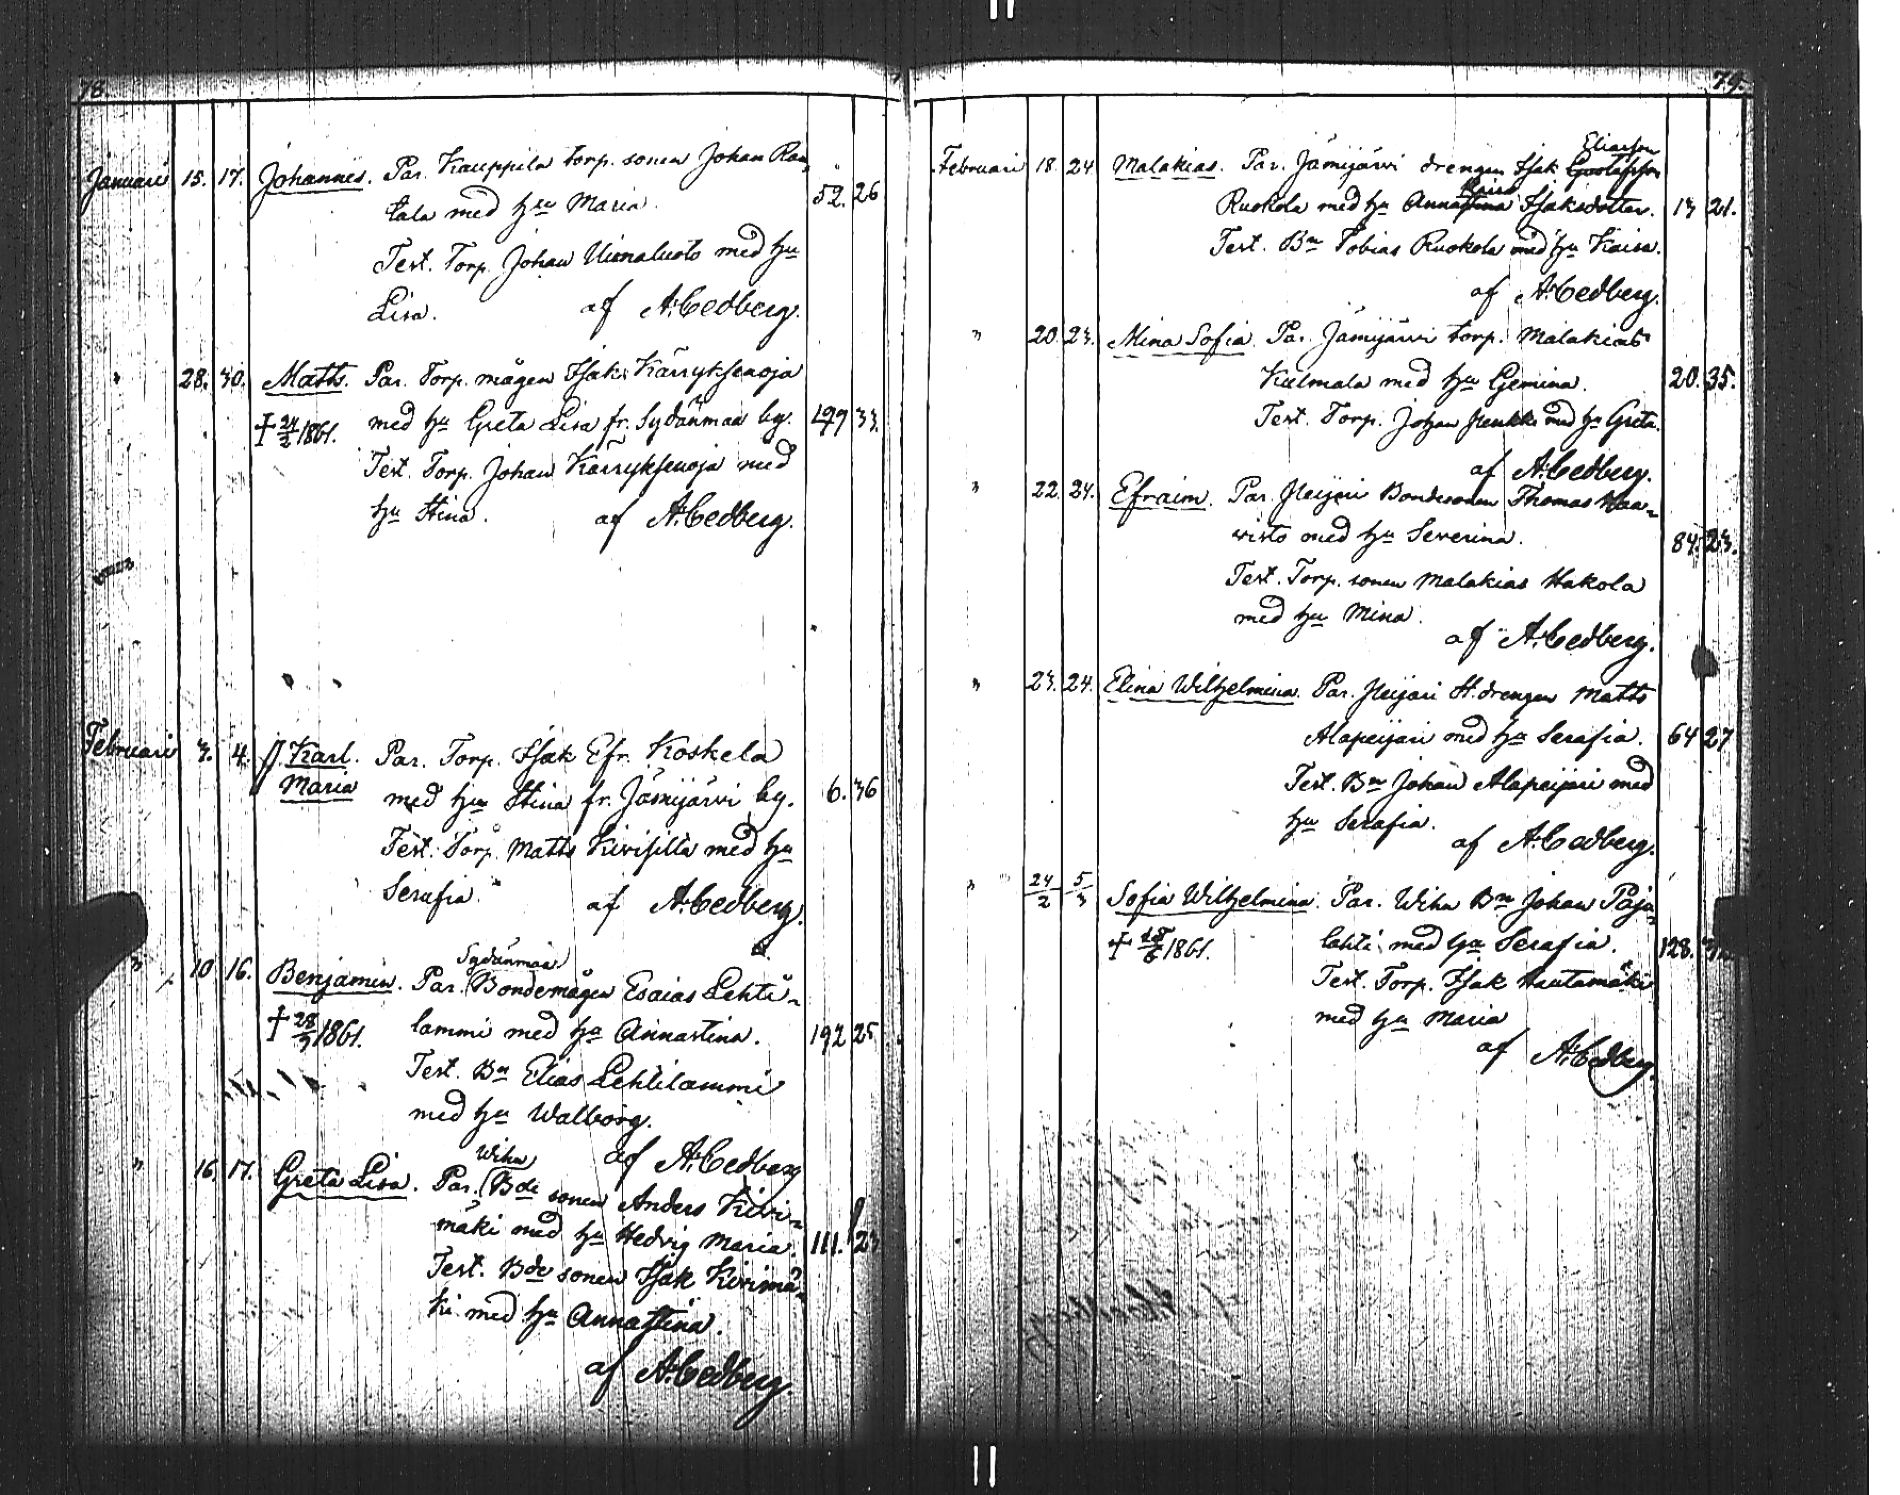 78.
Januari 15. 17. Johannes. Par. Kauppila torp. sonen Johan Ran-
tala med hu Maria. 52. 26
Test. Torp. Johan Uimaluoto med hu
Lisa. af A. Cedberg.
" 28. 30. Matts. Par. Torp. mågen Isak Kärryksenoja
† 24/2 1861. med hu Greta Lisa fr. Sydänmaa by. 197 33.
Test. Torp. Johan Kärryksenoja med
hu Stina. af A. Cedberg.
Februari 3. 4. Karl. Par. Torp. Isak Efr. Koskela
Maria med hu Stina fr. Jämijärvi by. 6. 36
Test. Torp. Matts Kivisilla med hu
Serafia. af A. Cedberg.
Sydänmaa
" 10 16. Benjamin. Par. Bondemågen Esaias Lehti-
† 28/3 1861. lammi med hu Annastina. 192 25
Test. Bn Elias Lehtilammi
med hu Walborg.
af A. Cedberg
Wihu
" 16. 17. Greta Lisa. Par. Bde sonen Anders Kivi-
mäki med hu Hedvig Maria. 111. 23
Test. Bde sonen Isak Kivimä-
ki med hu Annastina.
af A. Cedberg.
79.
Eliasson
Februari 18. 24. Malakias. Par. Jämijärvi drengen Isak Gustafsson
Kaisa
Ruokola med hu Annastina Isaksdotter. 13 21.
Test. Bn Tobias Ruokola med hu Kaisa.
af A. Cedberg.
" 20. 23. Mina Sofia. Par. Jämijärvi torp. Malakias
Kulmala med hu Gemina. 20. 35.
Test. Torp. Johan med hu Greta.
af A. Cedberg.
" 22. 24. Efraim. Par. Peijari Bondesonen Thomas Haa-
visto med hu Severina. 84. 23.
Test. Torp. sonen Malakias Hakola
med hu Mina.
af A. Cedberg.
" 23. 24. Elina Wilhelmina. Par. Peijari H. drengen Matts
Alapeijari med hu Serafia. 64 27
Test. Bn Johan Alapeijari med
hu Serafia.
af A. Cedberg.
" 24/2 5/3 Sofia Wilhelmina. Par. Wihu Bn Johan Paju-
† 18/6 1861. lahti med hu Serafia. 128.
Test. Torp. Isak Hautamäki
med hu Maria
af A. Cedberg.